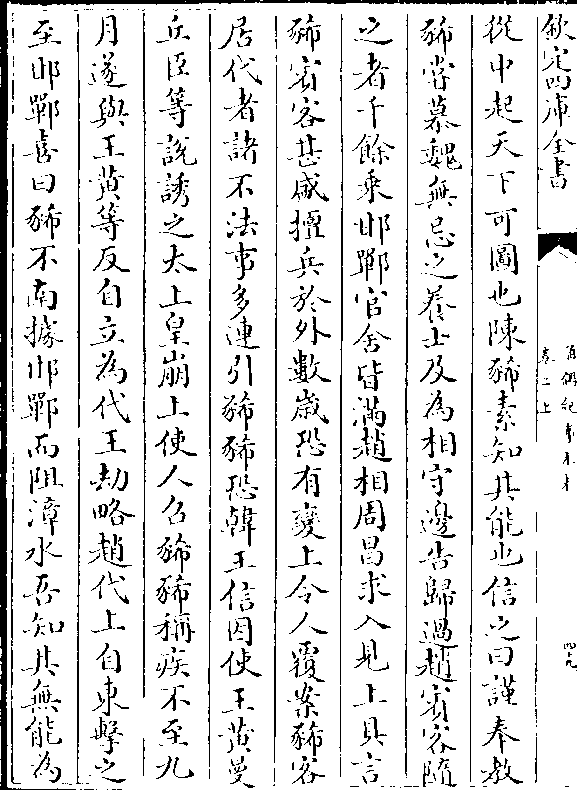 欽定四庫全書
通鑑紀事本末
卷二上
四九
從中起天下可圖也陳豨素知其能也信之曰謹奉教
豨常慕魏無忌之養士及為相守邊告歸過趙賓客隨
之者千餘乘邯鄲官舍皆滿趙相周昌求入見上具言
豨賓客甚盛擅兵於外數歲恐有變上令人覆案豨客
居代者諸不法事多連引豨豨恐韓王信因使王黄曼
丘臣等說誘之太上皇崩上使人召豨豨稱疾不至九
月遂與王黄等反自立為代王劫略趙代上自東擊之
至邯鄲喜曰豨不南據邯鄲而阻漳水吾知其無能為